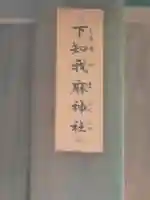 下知我麻神社